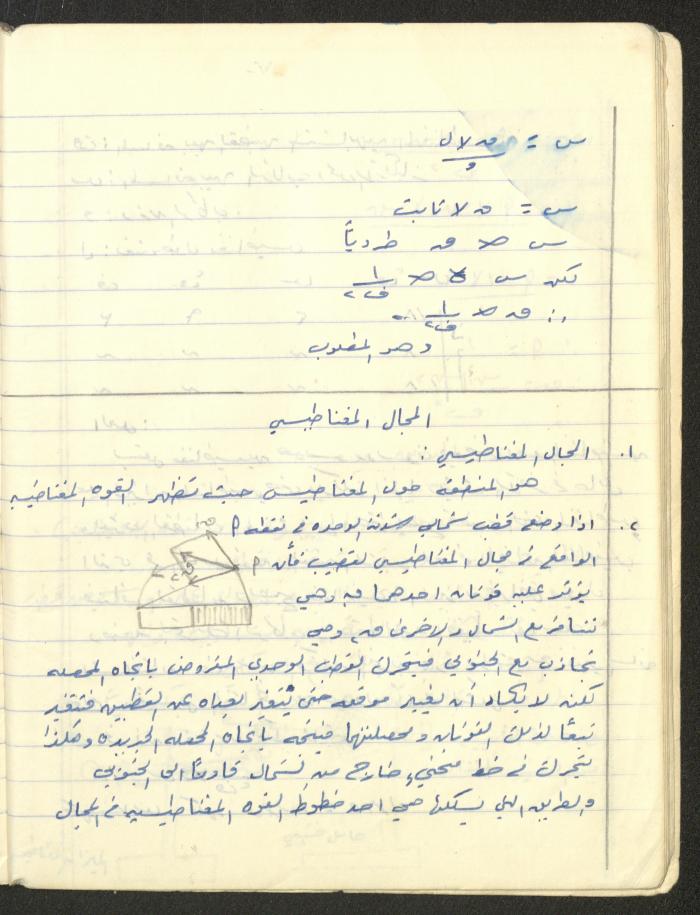 س = ق لا ل
و
س = ق لا ثابت
س ∝ ق طردياً
لكن س ∝ ١/ف٢
∴ ق ∝ ١/ف٢
وهو المطلوب
المجال المغناطيسي
١. المجال المغناطيسي :
هو المنطقه حول المغناطيس حيث تظهر القوه المغناطيسيه
٢. اذا وضع قطب شمالي الوحده في نقطه م
الواقع في مجال المغناطيسي لقضيب فأن م
يؤثر عليه قوتان احدهما ق وهي
تتنافر مع الشمال والاخرى ق وهي
تتجاذب مع الجنوبي فيتحرك القطب الوحدي المفروض باتجاه المحصله
لكنه لا يكاد أن يغيير موقعه حتى يتغير بعداه عن القطبين فتتغير
تبعاً لذلك القوتان ومحصلتهما فيتجه باتجاه المحصله الجديده وهكذا
يتحرك في خط منحني خارج من الشمال قادماً الى الجنوبي
والطريق التي يسلكها هي احد خطوط القوه المغناطيسيه في المجال